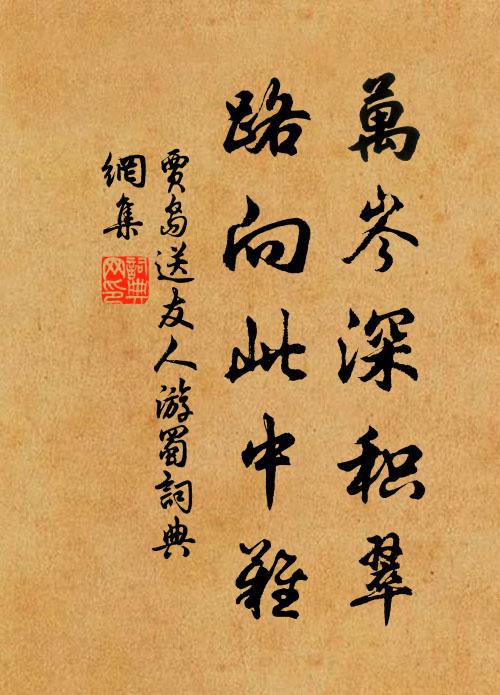 萬岑深积翠
路向此中難
賈島送友人游蜀詞典
網集
詞典
网印